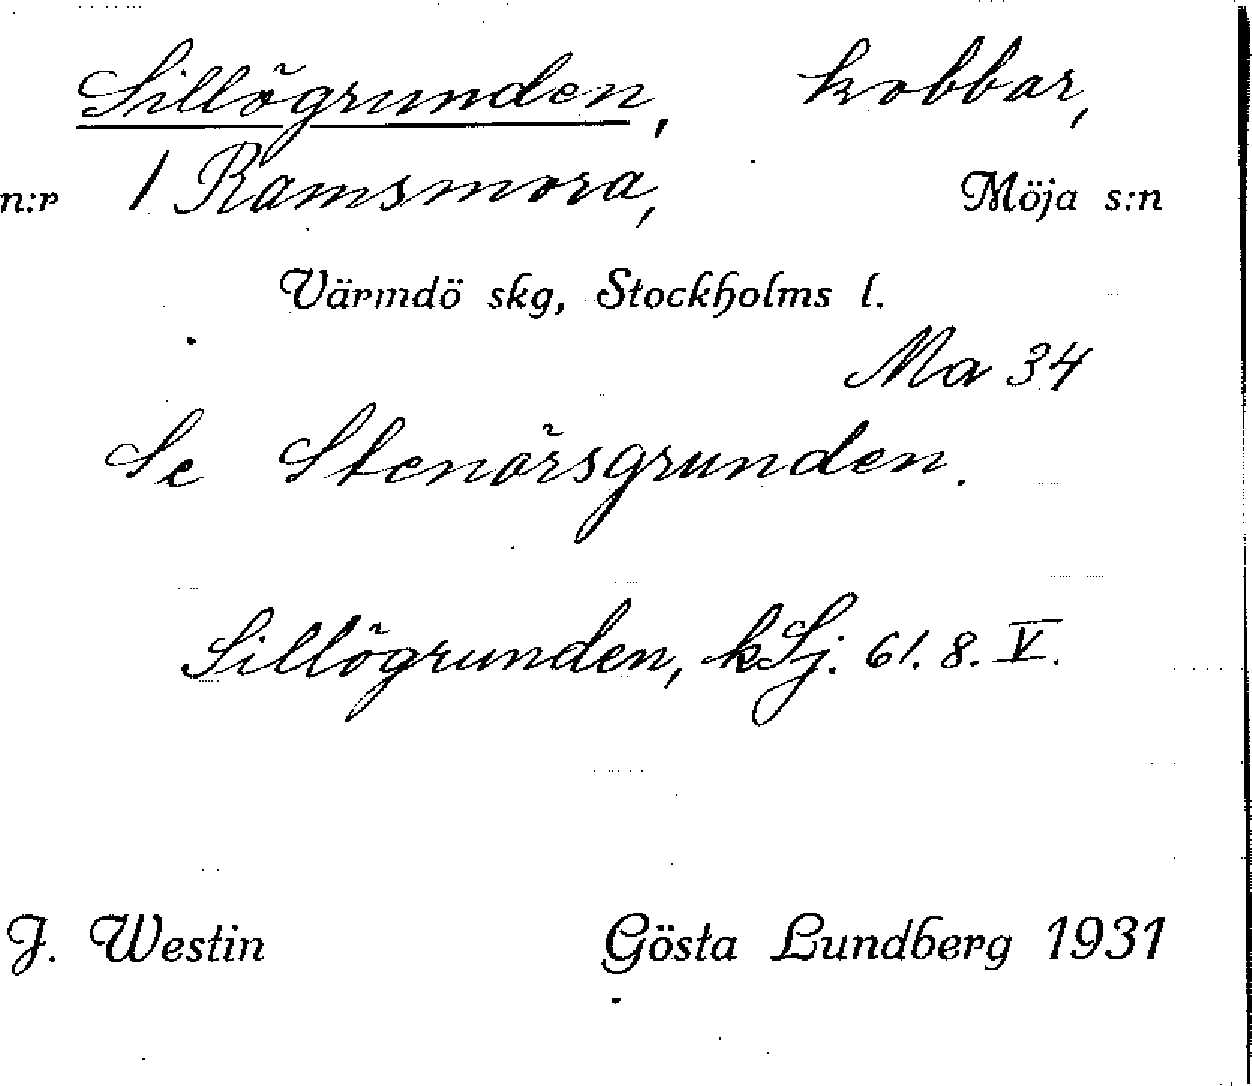 Sillögrunden, kobbar,
n:r 1 Ramsmora, Möja s:n
Värmdö skg, Stockholms l.
Ma 34
Se Stenörsgrunden.
Sillögrunden, kSj. 61. 8. V.
J. Westin Gösta Lundberg 1931